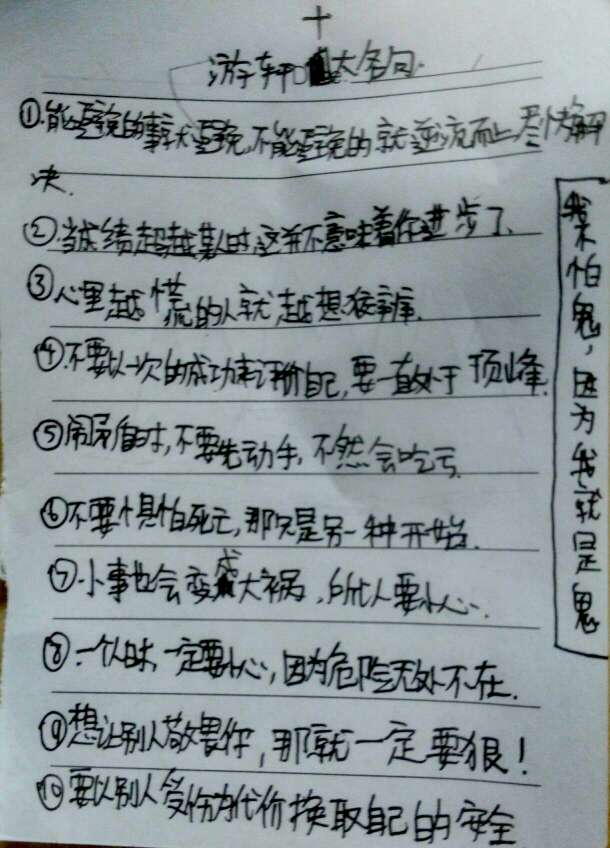 十
游轩大名句
①能避免的事就避免,不能避免的就逆流而上,尽快解
决.
②.当成绩超越某人时,这并不意味着你进步了.
③心里越慌的人就越想狡辩.
④.不要以一次的成功来评价自己,要一直处于顶峰.
⑤闹矛盾时,不要先动手,不然会吃亏.
⑥不要惧怕死亡,那只是另一种开始.
⑦.小事也会变成大祸,所以人要小心.
⑧.一个人时,一定要小心,因为危险无处不在.
⑨想让别人敬畏你,那就一定要狠!
⑩要以别人受伤为代价换取自己的安全
我不怕鬼,因为我就是鬼